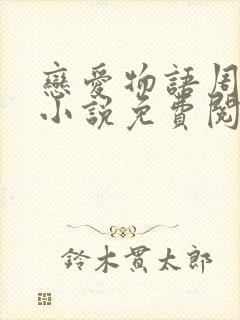 戀愛物語周
小說免費閱
鈴木貫太郎